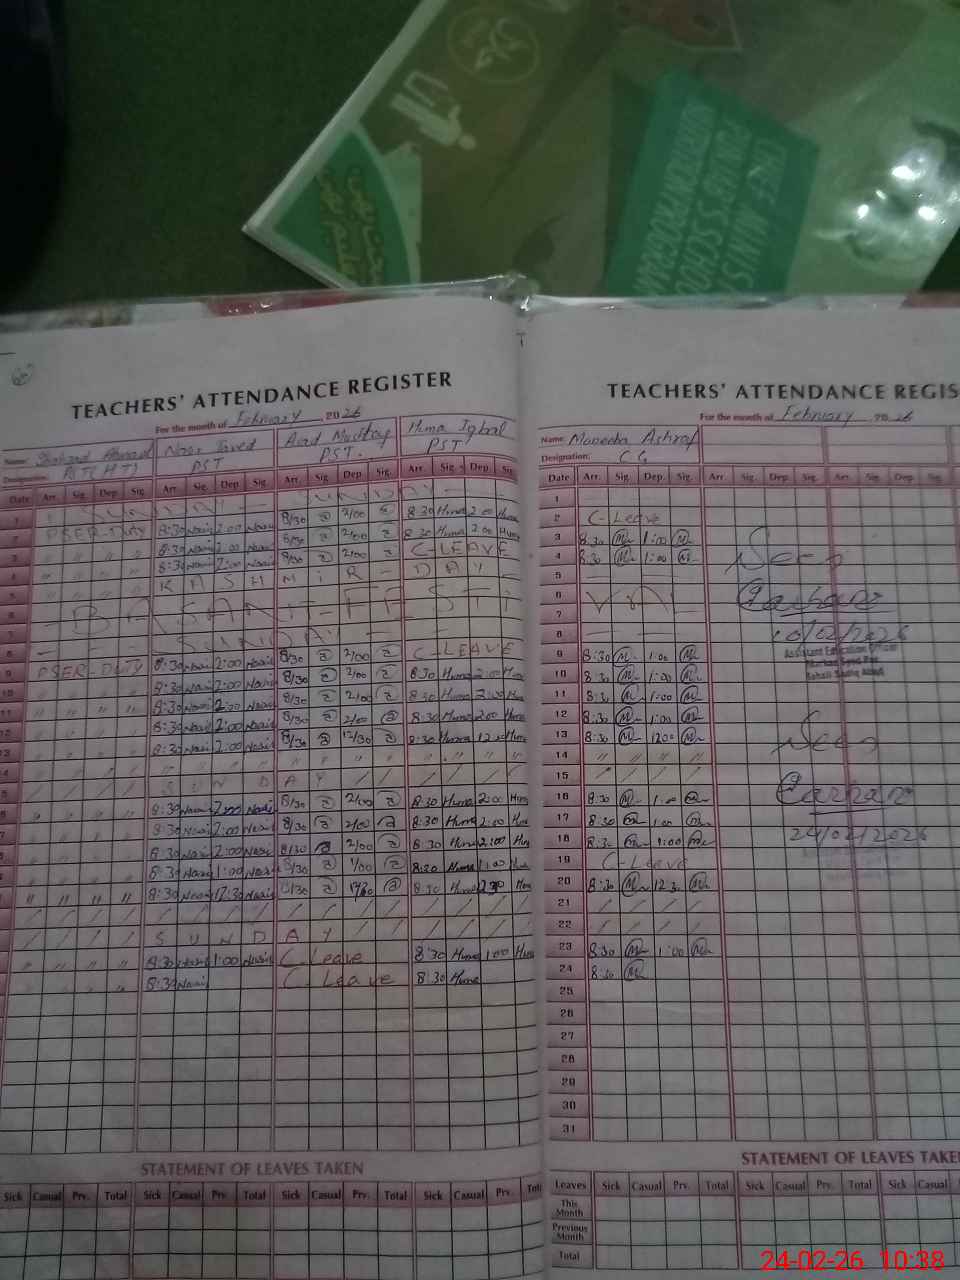 CHIEF MINISTER
PUNJAB'S SCHOOL
NUTRITION PROGRAM
TEACHERS' ATTENDANCE REGISTER
For the month of February 2026
Name: Shahzad Ahmad Nasir Javed Asad Mushtaq Huma Iqbal
Designation: PST(HT) PST PST. PST
Date Arr. Sig. Dep. Sig. Arr. Sig. Dep. Sig. Arr. Sig. Dep. Sig. Arr. Sig. Dep. Sig.
1 SUNDAY
2 PSER-DUTY 8:30 Nasir 2:00 Nasir 8/30 2/00 8 30 Huma 2 00 Huma
3 " " " " 8:30 Nasir 2:00 Nasir 8/30 2/00 8 30 Huma 2 00 Huma
4 " " " " 8:30 Nasir 2:00 Nasir 8/30 2/00 C-LEAVE
5 " " " " KASHMIR-DAY
BASANT-FESTI
8 SUNDAY
9 PSER-DUTY 8:30 Nasir 2:00 Nasir 8/30 2/00 C-LEAVE
10 " " " " 8:30 Nasir 2:00 Nasir 8/30 2/00 8 30 Huma 2:00 Huma
11 " " " " 8:30 Nasir 2:00 Nasir 8/30 2/00 8 30 Huma 2:00 Huma
12 " " " " 8:30 Nasir 2:00 Nasir 8/30 2/00 8:30 Huma 2:00 Huma
13 " " " " 8:30 Nasir 2:00 Nasir 8/30 12/30 8:30 Huma 12:30 Huma
" " " " " " " "
SUNDAY
" " " " 8:30 Nasir 2:00 Nasir 8/30 2/00 8:30 Huma 2:00 Huma
8:30 Nasir 2:00 Nasir 8/30 2/00 8:30 Huma 2:00 Huma
8:30 Nasir 2:00 Nasir 8/30 2/00 8:30 Huma 2:00 Huma
8:30 Nasir 1:00 Nasir 8/30 1/00 8:30 Huma 1:00 Huma
" " " " 8:30 Nasir 12:30 Nasir 8/30 8:30 Huma Huma
SUNDAY
" " " " 8:30 Nasir 1:00 Nasir C. Leave 8:30 Huma 1:00 Huma
" " " " 8:30 Nasir C. Leave 8 30 Huma
STATEMENT OF LEAVES TAKEN
Sick Casual Prv. Total Sick Casual Prv. Total Sick Casual Prv. Total Sick Casual Prv.
TEACHERS' ATTENDANCE REGIS
For the month of February 2026
Name: Moneeba Ashraf
Designation: C G
Date Arr. Sig. Dep. Sig. Arr. Sig. Dep. Sig. Arr. Sig. Dep. Sig.
1
2 C-Leave
3 8:30 M 1:00 M
4 8:30 M 1:00 M
5
6
7
8
9 8:30 M 1:00 M
10 8:30 M 1:00 M
11 8:30 M 1:00 M
12 8:30 M 1:00 M
13 8:30 M 1200 M
14 " " " "
15
16 8:30 M 1:00 M
17 8:30 M 1:00 M
18 8:30 M 1:00 M
19 C-Leave
20 8:30 M 12 30 M
21
22
23 8:30 M 1:00 M
24 8:30 M
25
26
27
28
29
30
31
Seen
10/02/2026
Assistant Education Officer
Seen
24/02/2026
STATEMENT OF LEAVES TAKEN
Leaves Sick Casual Prv. Total Sick Casual Prv. Total Sick Casual
This Month
Previous Month
Total
24-02-26 10:38